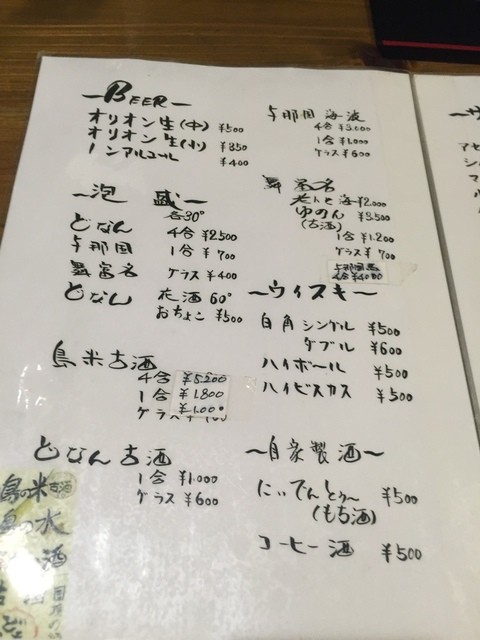 -BEER-
オリオン生(中) ¥500
オリオン生(小) ¥350
ノンアルコール ¥400
-泡盛-
各30°
どなん 4合 ¥2,500
与那国 1合 ¥700
舞富名 グラス ¥400
どなん 花酒 60°
おちょこ ¥500
島米古酒
4合 ¥5,200
1合 ¥1,800
グラス ¥1,000
どなん古酒
1合 ¥1,000
グラス ¥600
与那国海波
4合 ¥3,000
1合 ¥1,000
グラス ¥600
舞富名
老人と海 ¥2,000
ゆのん ¥3,500
(古酒)
1合 ¥1,200
グラス ¥700
4合 ¥4000
～ウィスキー～
白角 シングル ¥500
ダブル ¥600
ハイボール ¥500
ハイビスカス ¥500
～自家製酒～
にいでんとぅ～ ¥500
(もち酒)
コーヒー酒 ¥500
島の米古酒
島の水